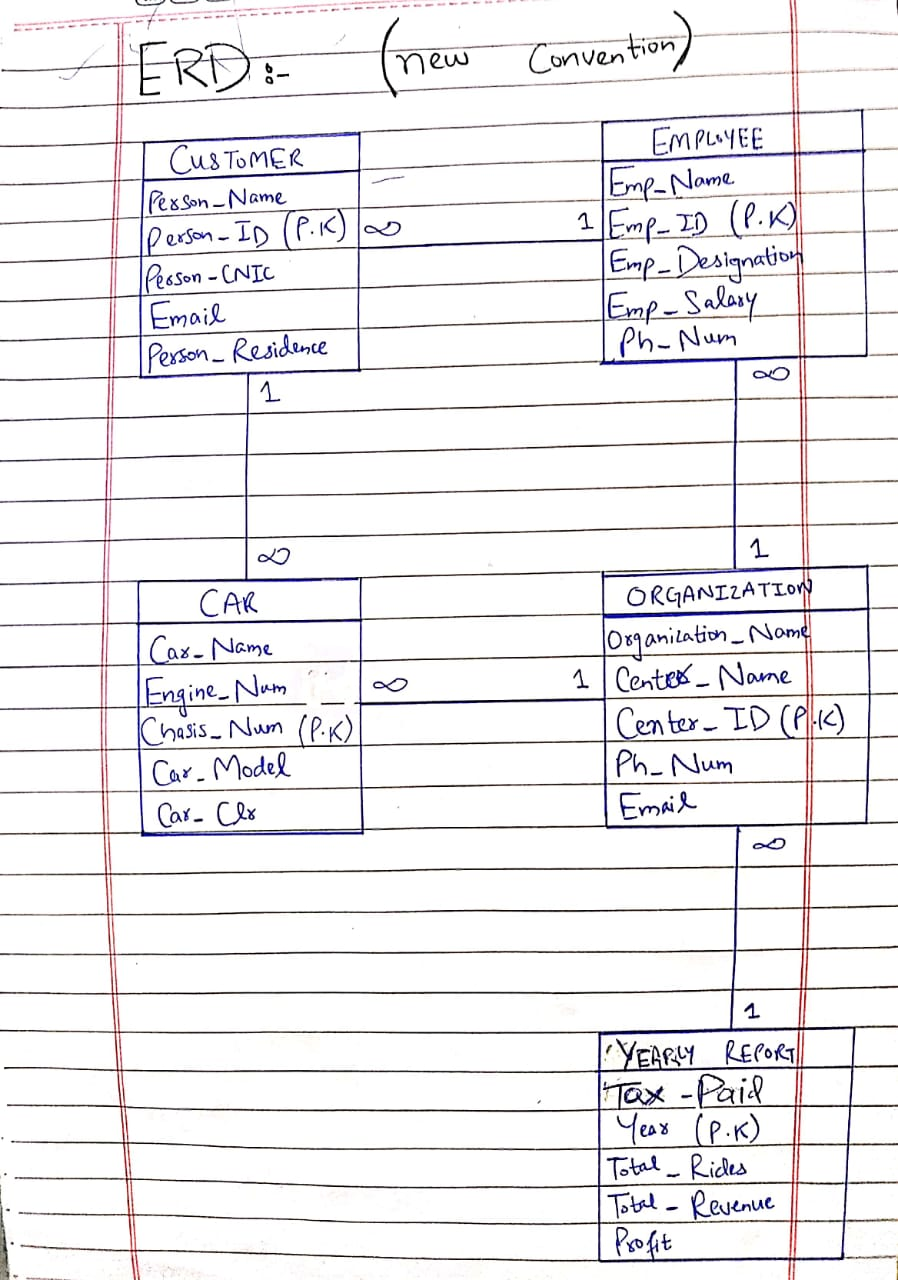 ERD:- (new Convention)
CUSTOMER
Person_Name
Person_ID (P.K)
Person-CNIC
Email
Person_Residence
∞ 1
EMPLOYEE
Emp_Name
Emp_ID (P.K)
Emp_Designation
Emp_Salary
Ph_Num
1
∞
∞
1
CAR
Car_Name
Engine_Num
Chasis_Num (P.K)
Car_Model
Car_Clr
∞ 1
ORGANIZATION
Organization_Name
Center_Name
Center_ID (P.K)
Ph_Num
Email
∞
1
YEARLY REPORT
Tax-Paid
Year (P.K)
Total_Rides
Total-Revenue
Profit